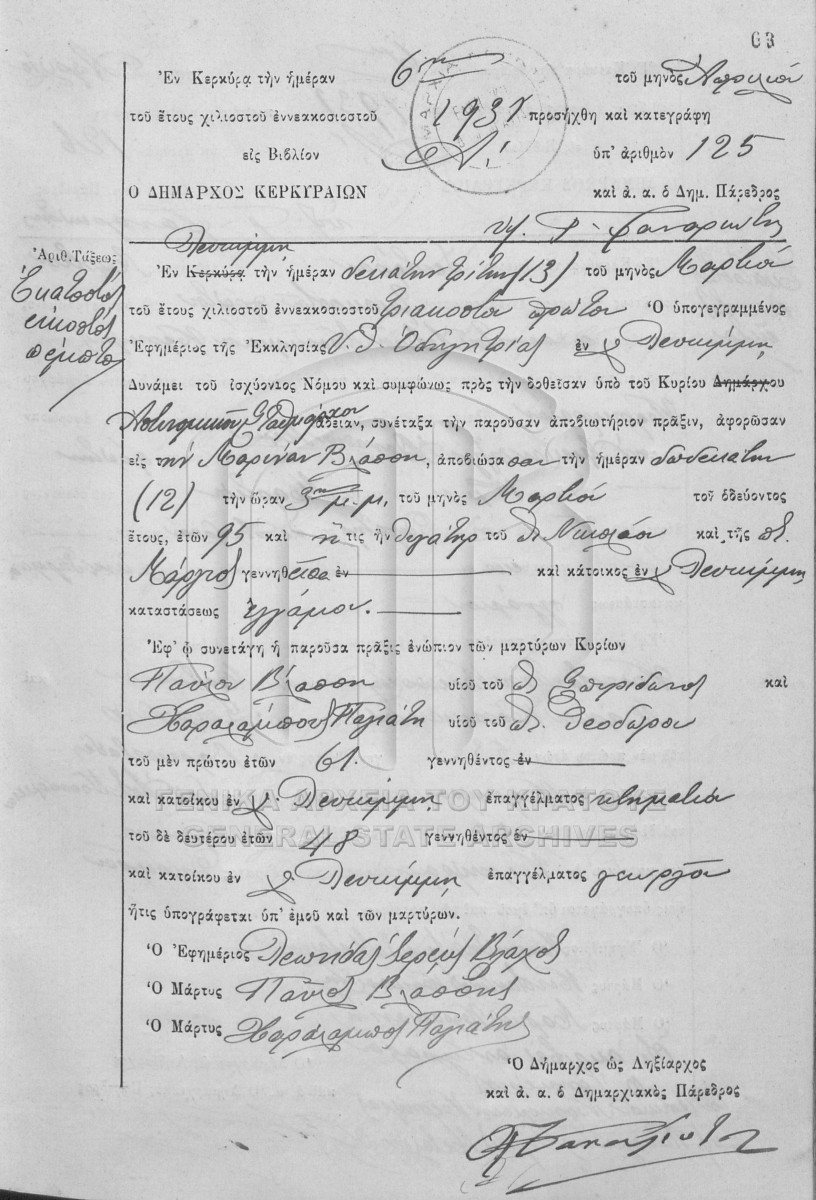 63
Ἐν Κερκύρᾳ τὴν ἡμέραν 6ην τοῦ μηνὸς Ἀπριλίου
τοῦ ἔτους χιλιοστοῦ ἐννεακοσιοστοῦ 1931 προσήχθη καὶ κατεγράφη
εἰς Βιβλίον Α! ὑπ' ἀριθμὸν 125
Ο ΔΗΜΑΡΧΟΣ ΚΕΡΚΥΡΑΙΩΝ καὶ ἀ. α. ὁ Δημ. Πάρεδρος
Λευκίμμη
Ἀριθ. Τάξεως
Ἑκατοστὸς
εἰκοστὸς
πέμπτος
Ἐν Κερκύρᾳ τὴν ἡμέραν δεκάτην τρίτην (13) τοῦ μηνὸς Μαρτίου
τοῦ ἔτους χιλιοστοῦ ἐννεακοσιοστοῦ τριακοστοῦ πρώτου Ὁ ὑπογεγραμμένος
Ἐφημέριος τῆς Ἐκκλησίας Υ. Θ. Ὁδηγητρίας ἐν Λευκίμμη
Δυνάμει τοῦ ἰσχύοντος Νόμου καὶ συμφώνως πρὸς τὴν δοθεῖσαν ὑπὸ τοῦ Κυρίου Δημάρχου
Ἀστυνομικοῦ Σταθμάρχου ἄδειαν, συνέταξα τὴν παροῦσαν ἀποβιωτήριον πρᾶξιν, ἀφορῶσαν
εἰς τὴν Μαρίναν Βλάσση, ἀποβιώσασαν τὴν ἡμέραν δωδεκάτην
(12) τὴν ὥραν 3ην μ.μ. τοῦ μηνὸς Μαρτίου τοῦ ὁδεύοντος
ἔτους, ἐτῶν 95 καὶ ἥτις ἦν θυγάτηρ τοῦ π. Νικολάου καὶ τῆς π.
Μάργως γεννηθεῖσα ἐν καὶ κάτοικος ἐν Λευκίμμη
καταστάσεως ἐγγάμου.
Ἐφ' ᾧ συνετάγη ἡ παροῦσα πρᾶξις ἐνώπιον τῶν μαρτύρων Κυρίων
Παύλου Βλάσση υἱοῦ τοῦ π. Σπυρίδωνος καὶ
Χαραλάμπους Παγιάτη υἱοῦ τοῦ π. Θεοδώρου
τοῦ μὲν πρώτου ἐτῶν 61. γεννηθέντος ἐν
καὶ κατοίκου ἐν Λευκίμμη ἐπαγγέλματος κτηματίου
ΓΕΝΙΚΑ ΑΡΧΕΙΑ ΤΟΥ ΚΡΑΤΟΥΣ
GENERAL STATE ARCHIVES
τοῦ δὲ δευτέρου ἐτῶν 48 γεννηθέντος ἐν
καὶ κατοίκου ἐν Λευκίμμη ἐπαγγέλματος γεωργοῦ
ἥτις ὑπογράφεται ὑπ' ἐμοῦ καὶ τῶν μαρτύρων.
Ὁ Ἐφημέριος Λεωνίδας Ἱερεὺς Βλάχος
Ὁ Μάρτυς Παῦλος Βλάσσης
Ὁ Μάρτυς Χαράλαμπος Παγιάτης
Ὁ Δήμαρχος ὡς Ληξίαρχος
καὶ ἀ. α. ὁ Δημαρχιακὸς Πάρεδρος